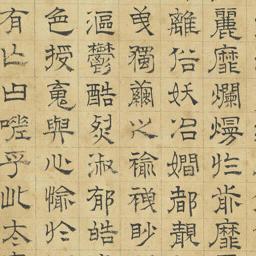 麗靡爛熳於前靡
離俗妖冶嫺都靚
曳獨繭之褕眇
漚鬱酷烈淑郁皓
色授魂與心愉於
有亡曰嗟乎此太